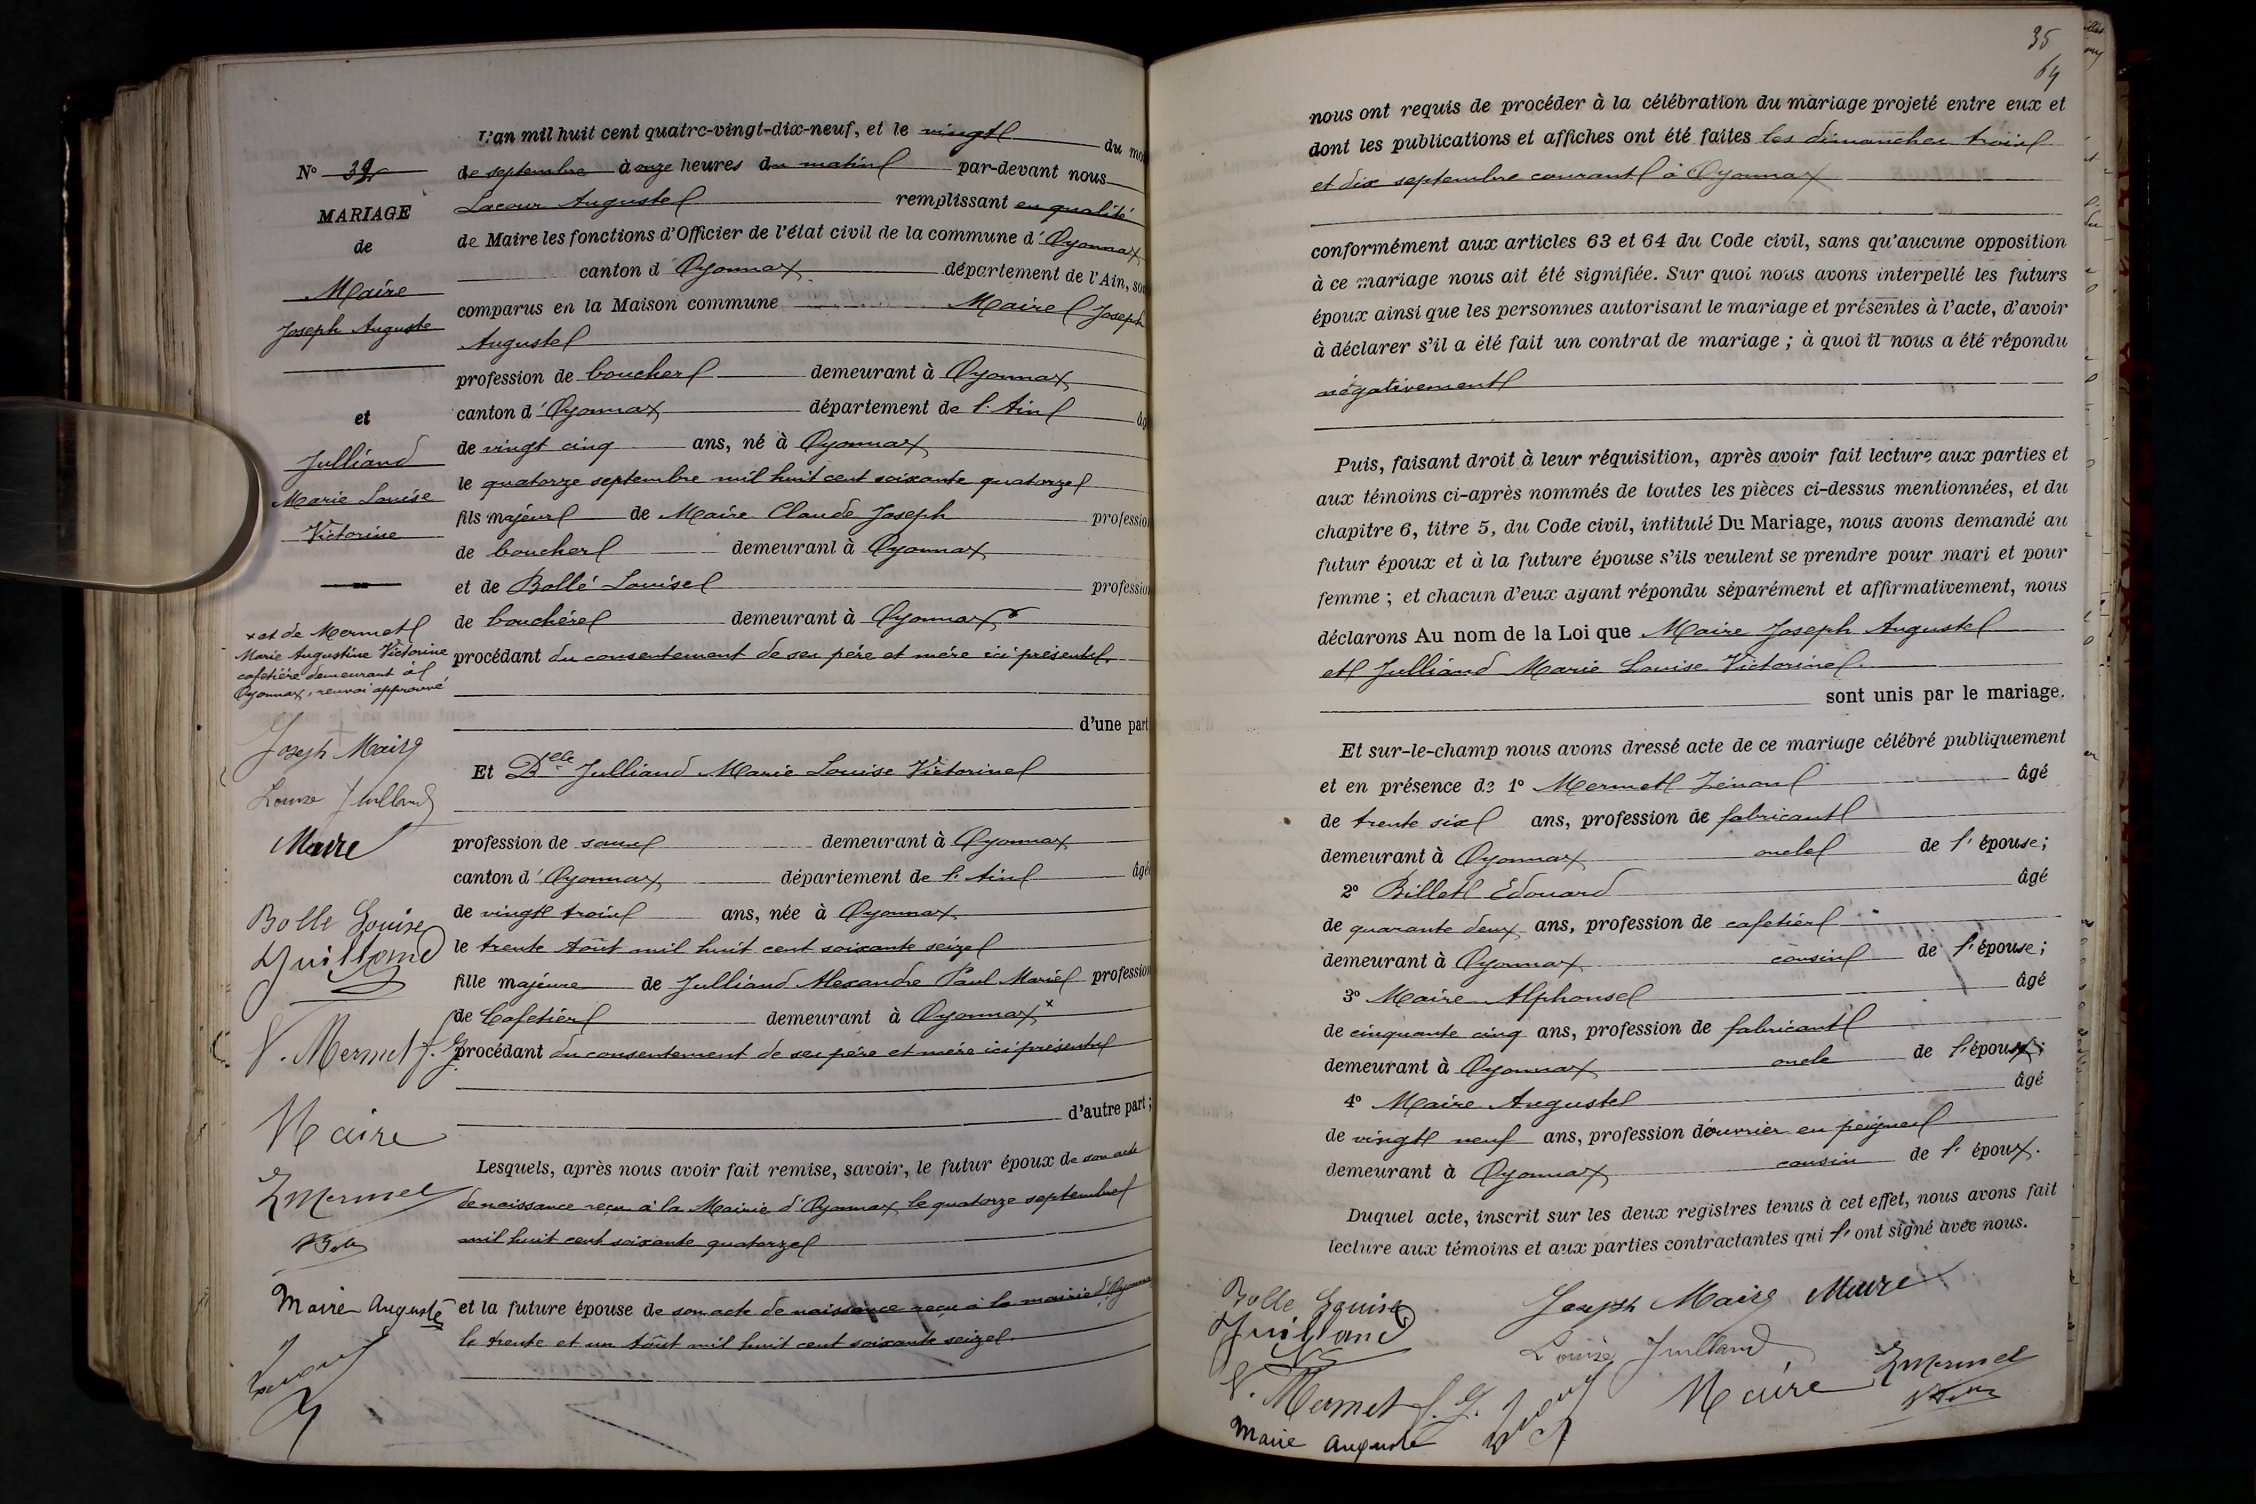 N° 39
MARIAGE
de
Maire
Joseph Auguste
et
Julliand
Marie Louise
Victorine
x et de Mermet
Marie Augustine Victorine
cafetière demeurant à
Oyonnax, renvoi approuvé
Joseph Maire
Louise Juilland
Maire
Bolle Louise
Juilland
V. Mermet f. J.
Maire
Z Mermet
Maire Auguste
L'an mil huit cent quatre-vingt-dix-neuf, et le vingt du mo
de septembre à onze heures du matin par-devant nous
Lacour Auguste remplissant en qualité
de Maire les fonctions d'Officier de l'état civil de la commune d'Oyonnax
canton d'Oyonnax département de l'Ain, son
comparus en la Maison commune Maire Joseph
Auguste
profession de boucher demeurant à Oyonnax
canton d'Oyonnax département de l'Ain âg
de vingt cinq ans, né à Oyonnax
le quatorze septembre mil huit cent soixante quatorze
fils majeur de Maire Claude Joseph profession
de boucher demeurant à Oyonnax
et de Bollé Louise profession
de bouchère demeurant à Oyonnax
procédant du consentement de ses père et mère ici présents.
d'une part
Et Delle Julliand Marie Louise Victorine
profession de sans demeurant à Oyonnax
canton d'Oyonnax département de l'Ain âgée
de vingt trois ans, née à Oyonnax
le trente août mil huit cent soixante seize
fille majeure de Julliand Alexandre Paul Marie profession
de Cafetier demeurant à Oyonnax x
procédant du consentement de ses père et mère ici présents
d'autre part ;
Lesquels, après nous avoir fait remise, savoir, le futur époux de son acte
de naissance reçu à la Mairie d'Oyonnax le quatorze septembre
mil huit cent soixante quatorze
et la future épouse de son acte de naissance reçu à la mairie d'Oyonnax
le trente et un août mil huit cent soixante seize.
35
64
nous ont requis de procéder à la célébration du mariage projeté entre eux et
dont les publications et affiches ont été faites les dimanches trois
et dix septembre courant à Oyonnax
conformément aux articles 63 et 64 du Code civil, sans qu'aucune opposition
à ce mariage nous ait été signifiée. Sur quoi nous avons interpellé les futurs
époux ainsi que les personnes autorisant le mariage et présentes à l'acte, d'avoir
à déclarer s'il a été fait un contrat de mariage ; à quoi il nous a été répondu
négativement
Puis, faisant droit à leur réquisition, après avoir fait lecture aux parties et
aux témoins ci-après nommés de toutes les pièces ci-dessus mentionnées, et du
chapitre 6, titre 5, du Code civil, intitulé Du Mariage, nous avons demandé au
futur époux et à la future épouse s'ils veulent se prendre pour mari et pour
femme ; et chacun d'eux ayant répondu séparément et affirmativement, nous
déclarons Au nom de la Loi que Maire Joseph Auguste
et Julliand Marie Louise Victorine
sont unis par le mariage.
Et sur-le-champ nous avons dressé acte de ce mariage célébré publiquement
et en présence de 1° Mermet Zénon âgé
de trente six ans, profession de fabricant
demeurant à Oyonnax oncle de l'épouse ;
2° Billet Edouard âgé
de quarante deux ans, profession de cafetier
demeurant à Oyonnax cousin de l'épouse ;
3° Maire Alphonse âgé
de cinquante cinq ans, profession de fabricant
demeurant à Oyonnax oncle de l'époux ;
4° Maire Auguste âgé
de vingt neuf ans, profession d'ouvrier en peignes
demeurant à Oyonnax cousin de l'époux.
Duquel acte, inscrit sur les deux registres tenus à cet effet, nous avons fait
lecture aux témoins et aux parties contractantes qui l'ont signé avec nous.
Bolle Louise Joseph Maire Maire
Juilland Louise Juilland
V. Mermet f. J. Maire Z Mermet
Maire Auguste